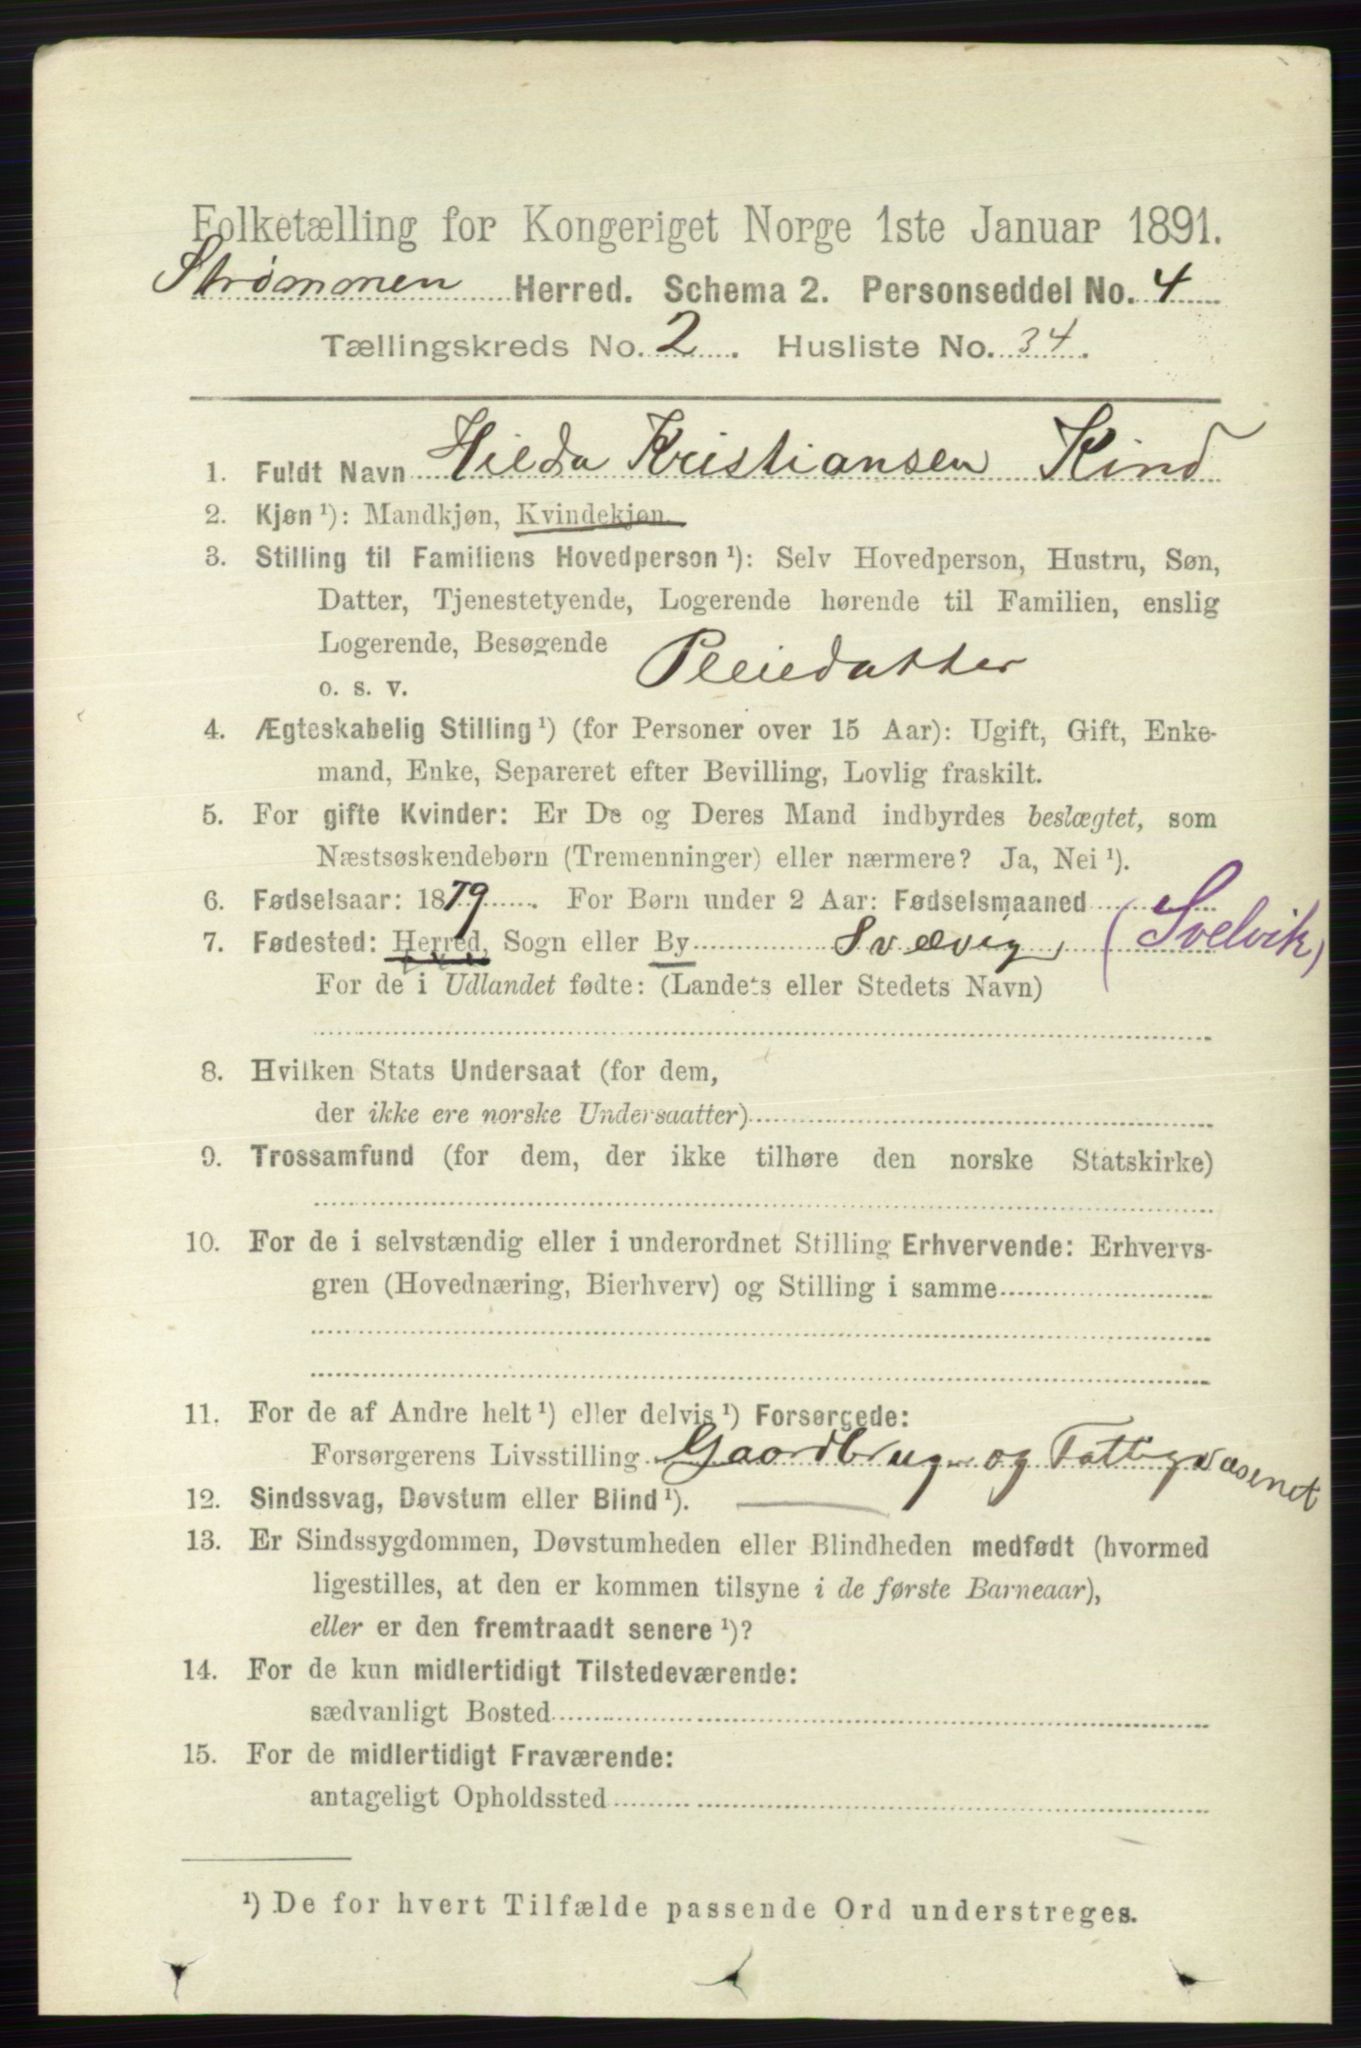 Folketælling for Kongeriget Norge 1ste Januar 1891.
Strømmen Herred. Schema 2. Personseddel No. 4
Tællingskreds No. 2. Husliste No. 34.
1. Fuldt Navn Hilda Kristiansen Kind
2. Kjøn ¹): Mandkjøn, Kvindekjøn.
3. Stilling til Familiens Hovedperson ¹): Selv Hovedperson, Hustru, Søn,
Datter, Tjenestetyende, Logerende hørende til Familien, enslig
Logerende, Besøgende
o. s. v. Pleiedatter
4. Ægteskabelig Stilling ¹) (for Personer over 15 Aar): Ugift, Gift, Enke-
mand, Enke, Separeret efter Bevilling, Lovlig fraskilt.
5. For gifte Kvinder: Er De og Deres Mand indbyrdes beslægtet, som
Næstsøskendebørn (Tremenninger) eller nærmere? Ja, Nei ¹).
6. Fødselsaar: 1879. For Børn under 2 Aar: Fødselsmaaned
7. Fødested: Herred, Sogn eller By Svelvig, (Svelvik)
For de i Udlandet fødte: (Landets eller Stedets Navn)
8. Hvilken Stats Undersaat (for dem,
der ikke ere norske Undersaatter)
9. Trossamfund (for dem, der ikke tilhøre den norske Statskirke)
10. For de i selvstændig eller i underordnet Stilling Erhvervende: Erhvervs-
gren (Hovednæring, Bierhverv) og Stilling i samme
11. For de af Andre helt ¹) eller delvis ¹) Forsørgede:
Forsørgerens Livsstilling Gaardbruger og Fattigvæsenet
12. Sindssvag, Døvstum eller Blind ¹).
13. Er Sindssygdommen, Døvstumheden eller Blindheden medfødt (hvormed
ligestilles, at den er kommen tilsyne i de første Barneaar),
eller er den fremtraadt senere ¹)?
14. For de kun midlertidigt Tilstedeværende:
sædvanligt Bosted
15. For de midlertidigt Fraværende:
antageligt Opholdssted
¹) De for hvert Tilfælde passende Ord understreges.